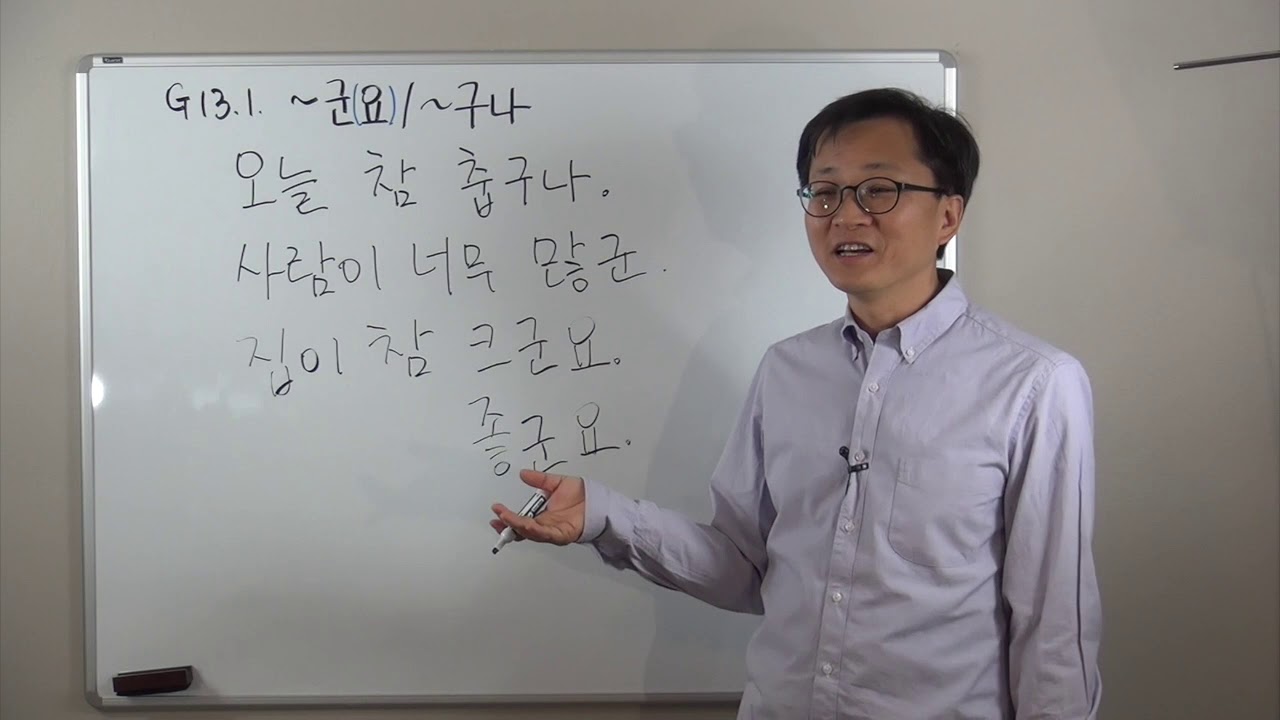 G13.1. ~군(요)/~구나
오늘 참 춥구나.
사람이 너무 많군.
집이 참 크군요.
좋군요.